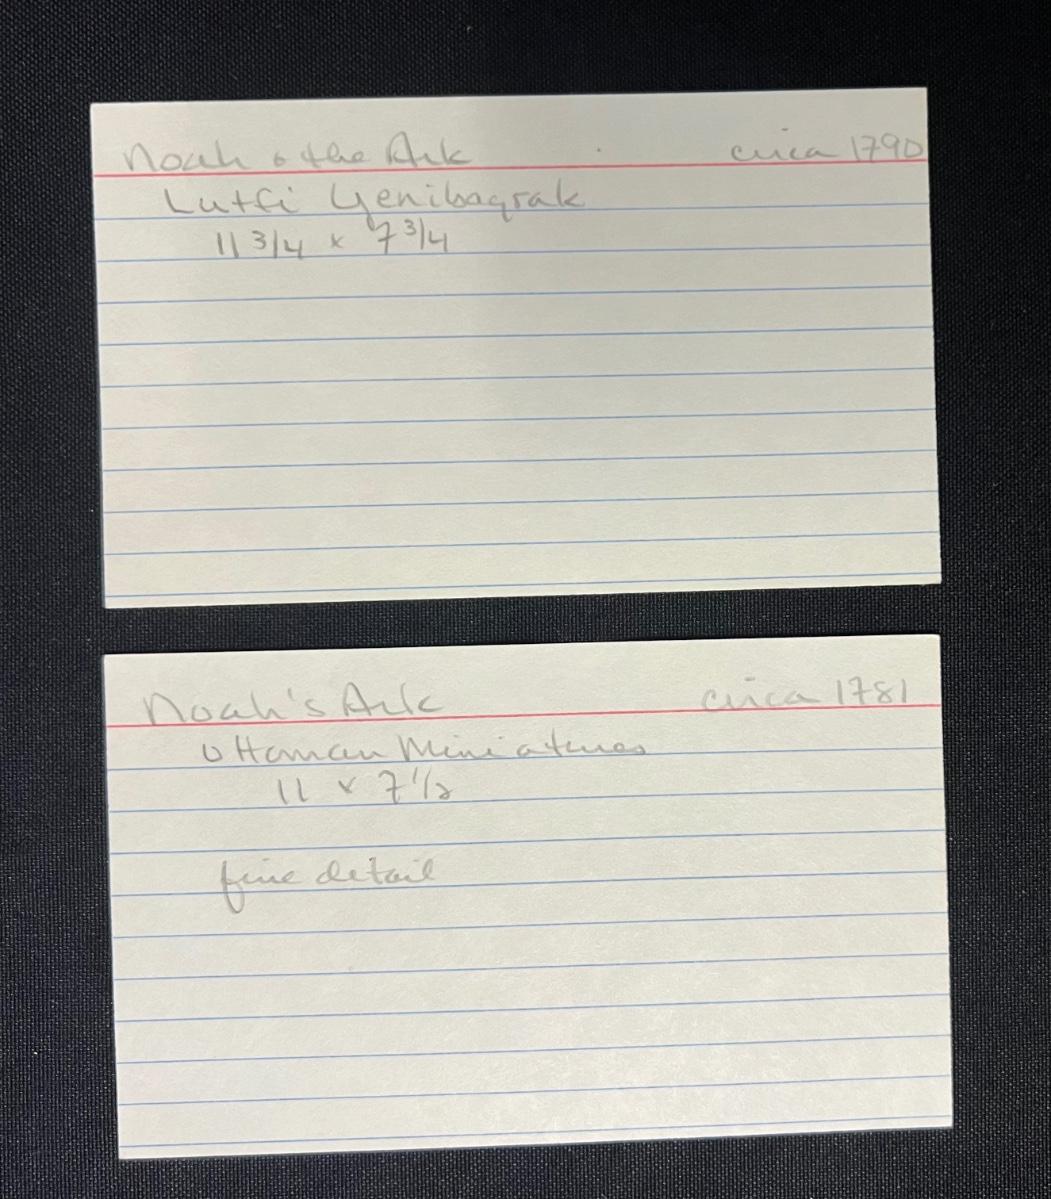 Noah & the Ark circa 1790
Lutfi Yenibaqrak
11 3/4 x 7 3/4
Noah's Ark circa 1781
Ottoman Miniatures
11 x 7 1/2
fine detail